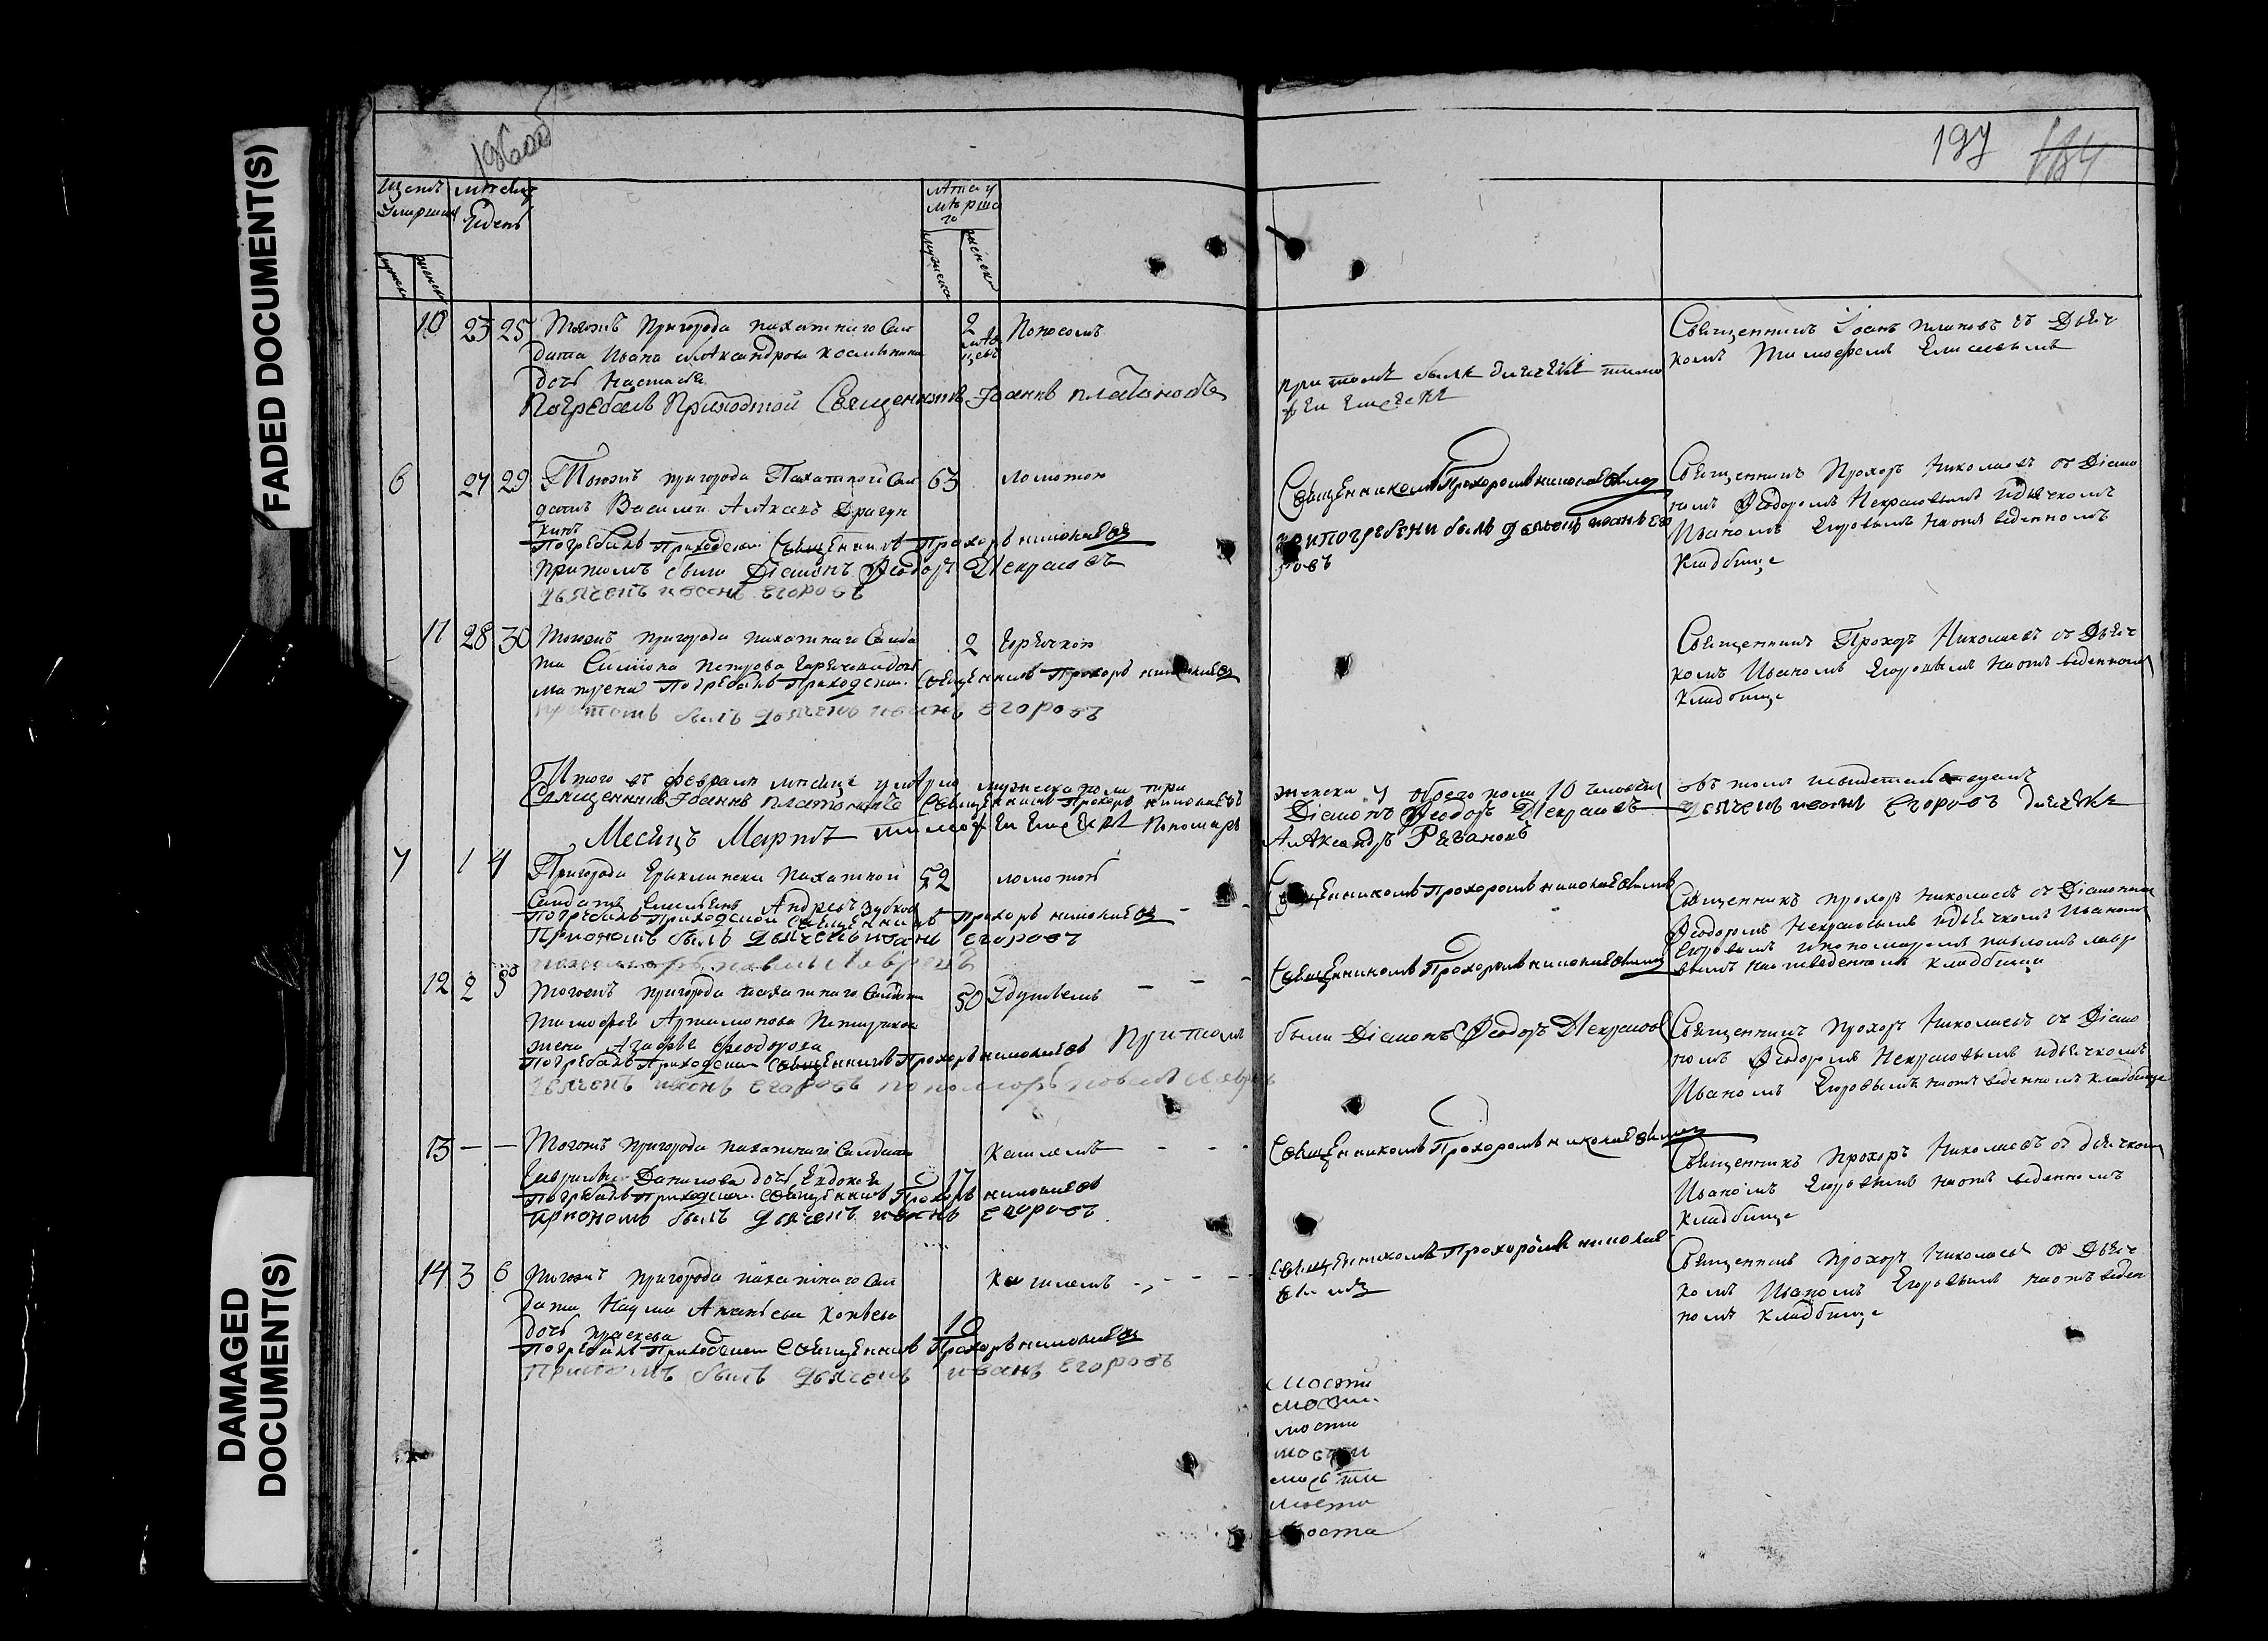 FADED DOCUMENT(S)
DAMAGED
DOCUMENT(S)
196об
197
184
месяць
Iдень
мужеска
женска
10 23 25 Тогожъ пригорода пахатнаго Сал
дата Ивана Александрова
дочь Настасья
2
Поносомъ
Погребалъ Приходской Священникъ Iоаннъ платоновъ
при томъ былъ дьячекъ тимо
фей Елисеевъ
Священникъ Iоанъ платоновъ съ Дьяч
комъ Тимофеемъ Елисеевымъ
6 27 29 Тогожъ пригорода Пахатной Сал
датъ Василей Алексеевъ Драгун
кинъ
63
ломотою
Погребалъ Приходской Священникъ Прохоръ николаевъ
притомъ были Дiаконъ Феодоръ Некрасовъ
дьячекъ иванъ егоровъ
Священникомъ Прохоромъ николаевымъ
припогребени былъ дьячекъ иванъ его
ровъ
Священникъ Прохоръ Николаевъ съ Дiако
номъ Феодоромъ Некрасовымъ идьячкомъ
Иваномъ Егоровымъ наотведенномъ
Кладбище
11 28 30 Тогожъ пригорода пахатнаго Салда
та Симиона петрова дочь
матрена Погребалъ Приходской Священникъ Прохоръ николаевъ
2
горячкою
притомъ былъ дьячекъ иванъ егоровъ
Священникъ Прохоръ Николаевъ съ Дьяч
комъ Иваномъ Егоровымъ наотведенномъ
Кладбище
Итого въ феврале месяце умерло мужеска пола три
женска 7 обоего пола 10 человекъ
Священникъ Iоаннъ платоновъ Священникъ Прохоръ николаевъ
Дiаконъ Феодоръ Некрасовъ
дьячекъ иванъ егоровъ дьячекъ
Месяцъ Мартъ
тимофей Елисеевъ Пономарь
Александръ
7 1 4 Пригорода Ерыклинска Пахатной
Салдатъ Емельянъ Андреевъ Зубковъ
52
ломотою
Погребалъ Приходской Священникъ Прохоръ николаевъ
Приономъ былъ дьячекъ иванъ егоровъ
пономорь павелъ лавревъ
Священникомъ Прохоромъ николаевымъ
Священникъ Прохоръ Николаевъ съ Дiакономъ
Феодоромъ Некрасовымъ идьячкомъ Иваномъ
Егоровымъ ипономаремъ павломъ лавре
вымъ наотведенномъ кладбище
12 2 5 Тогожъ пригорода пахатнаго Салдата
Тимофея Артамонова
жена Агафья Феодорова
50
Погребалъ Приходской Священникъ Прохоръ николаевъ Притомъ
дьячекъ иванъ егоровъ пономорь павелъ лаврев
Священникомъ Прохоромъ николаевымъ
были Дiаконъ Феодоръ Некрасовъ
Священникъ Прохоръ Николаевъ съ Дiако
номъ Феодоромъ Некрасовымъ идьячкомъ
Иваномъ Егоровымъ наотведенномъ кладбище
13 — — Тогожъ пригорода пахатнаго Салдата
Гаврилы Данилова дочь Евдокея
17
Кашлемъ
Погребалъ Приходской Священникъ Прохоръ николаевъ
приономъ былъ дьячекъ иванъ егоровъ
Священникомъ Прохоромъ николаевымъ
Священникъ Прохоръ Николаевъ съ дьячкомъ
Иваномъ Егоровымъ наотведенномъ
Кладбище
14 3 6 Тогожъ пригорода пахатнаго Сал
дата Наума Ананьева
дочь праскева
10
Кашлемъ
Погребалъ Приходской Священникъ Прохоръ николаевъ
Притомъ былъ дьячекъ иванъ егоровъ
Священникомъ Прохоромъ николае
вымъ
Священникъ Прохоръ Николаевъ съ Дьяч
комъ Иваномъ Егоровымъ наотведен
номъ кладбище
мости
мости
мости
мости
мости
мости